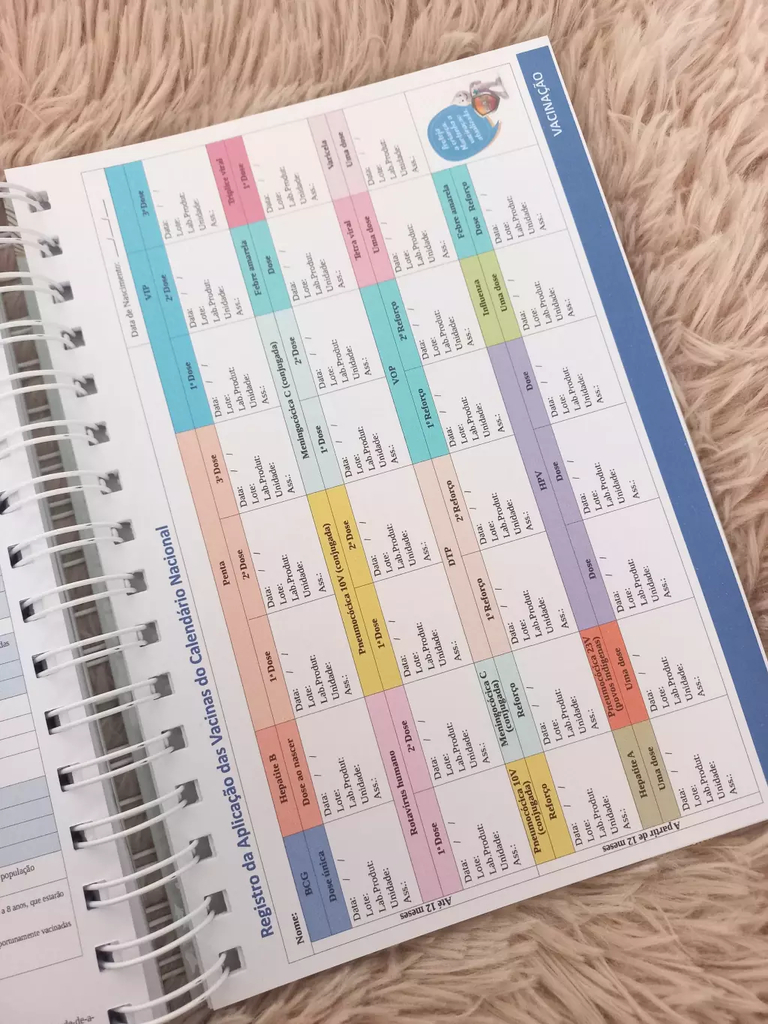 Registro da Aplicação das Vacinas do Calendário Nacional
Nome: Data de Nascimento: ___/___
Até 12 meses
BCG Hepatite B Penta VIP
Dose única Dose ao nascer 1ª Dose 2ª Dose 3ª Dose 1ª Dose 2ª Dose 3ª Dose
Data: / Data: / Data: / Data: / Data: / Data: / Data: / Data: /
Lote: Lote: Lote: Lote: Lote: Lote: Lote: Lote:
Lab.Produt: Lab.Produt: Lab.Produt: Lab.Produt: Lab.Produt: Lab.Produt: Lab.Produt: Lab.Produt:
Unidade: Unidade: Unidade: Unidade: Unidade: Unidade: Unidade: Unidade:
Ass.: Ass.: Ass.: Ass.: Ass.: Ass.: Ass.: Ass.:
Rotavírus humano Pneumocócica 10V (conjugada) Meningocócica C (conjugada) Febre amarela Tríplice viral
1ª Dose 2ª Dose 1ª Dose 2ª Dose 1ª Dose 2ª Dose Dose 1ª Dose
Data: / Data: / Data: / Data: / Data: / Data: / Data: / Data: /
Lote: Lote: Lote: Lote: Lote: Lote: Lote: Lote:
Lab.Produt: Lab.Produt: Lab.Produt: Lab.Produt: Lab.Produt: Lab.Produt: Lab.Produt: Lab.Produt:
Unidade: Unidade: Unidade: Unidade: Unidade: Unidade: Unidade: Unidade:
Ass.: Ass.: Ass.: Ass.: Ass.: Ass.: Ass.: Ass.:
A partir de 12 meses
Pneumocócica 10V (conjugada) Meningocócica C (conjugada) DTP VOP Tetra viral Varicela
Reforço Reforço 1º Reforço 2º Reforço 1º Reforço 2º Reforço Uma dose Uma dose
Data: / Data: / Data: / Data: / Data: / Data: / Data: / Data: /
Lote: Lote: Lote: Lote: Lote: Lote: Lote: Lote:
Lab.Produt: Lab.Produt: Lab.Produt: Lab.Produt: Lab.Produt: Lab.Produt: Lab.Produt: Lab.Produt:
Unidade: Unidade: Unidade: Unidade: Unidade: Unidade: Unidade: Unidade:
Ass.: Ass.: Ass.: Ass.: Ass.: Ass.: Ass.: Ass.:
Hepatite A Pneumocócica 23V (povos indígenas) HPV Influenza Febre amarela
Uma dose Uma dose Dose Dose Dose Uma dose Dose Reforço
Data: / Data: / Data: / Data: / Data: / Data: / Data: /
Lote: Lote: Lote: Lote: Lote: Lote: Lote:
Lab.Produt: Lab.Produt: Lab.Produt: Lab.Produt: Lab.Produt: Lab.Produt: Lab.Produt:
Unidade: Unidade: Unidade: Unidade: Unidade: Unidade: Unidade:
Ass.: Ass.: Ass.: Ass.: Ass.: Ass.: Ass.:
VACINAÇÃO
das
população
a 8 anos, que estarão
portunamente vacinadas